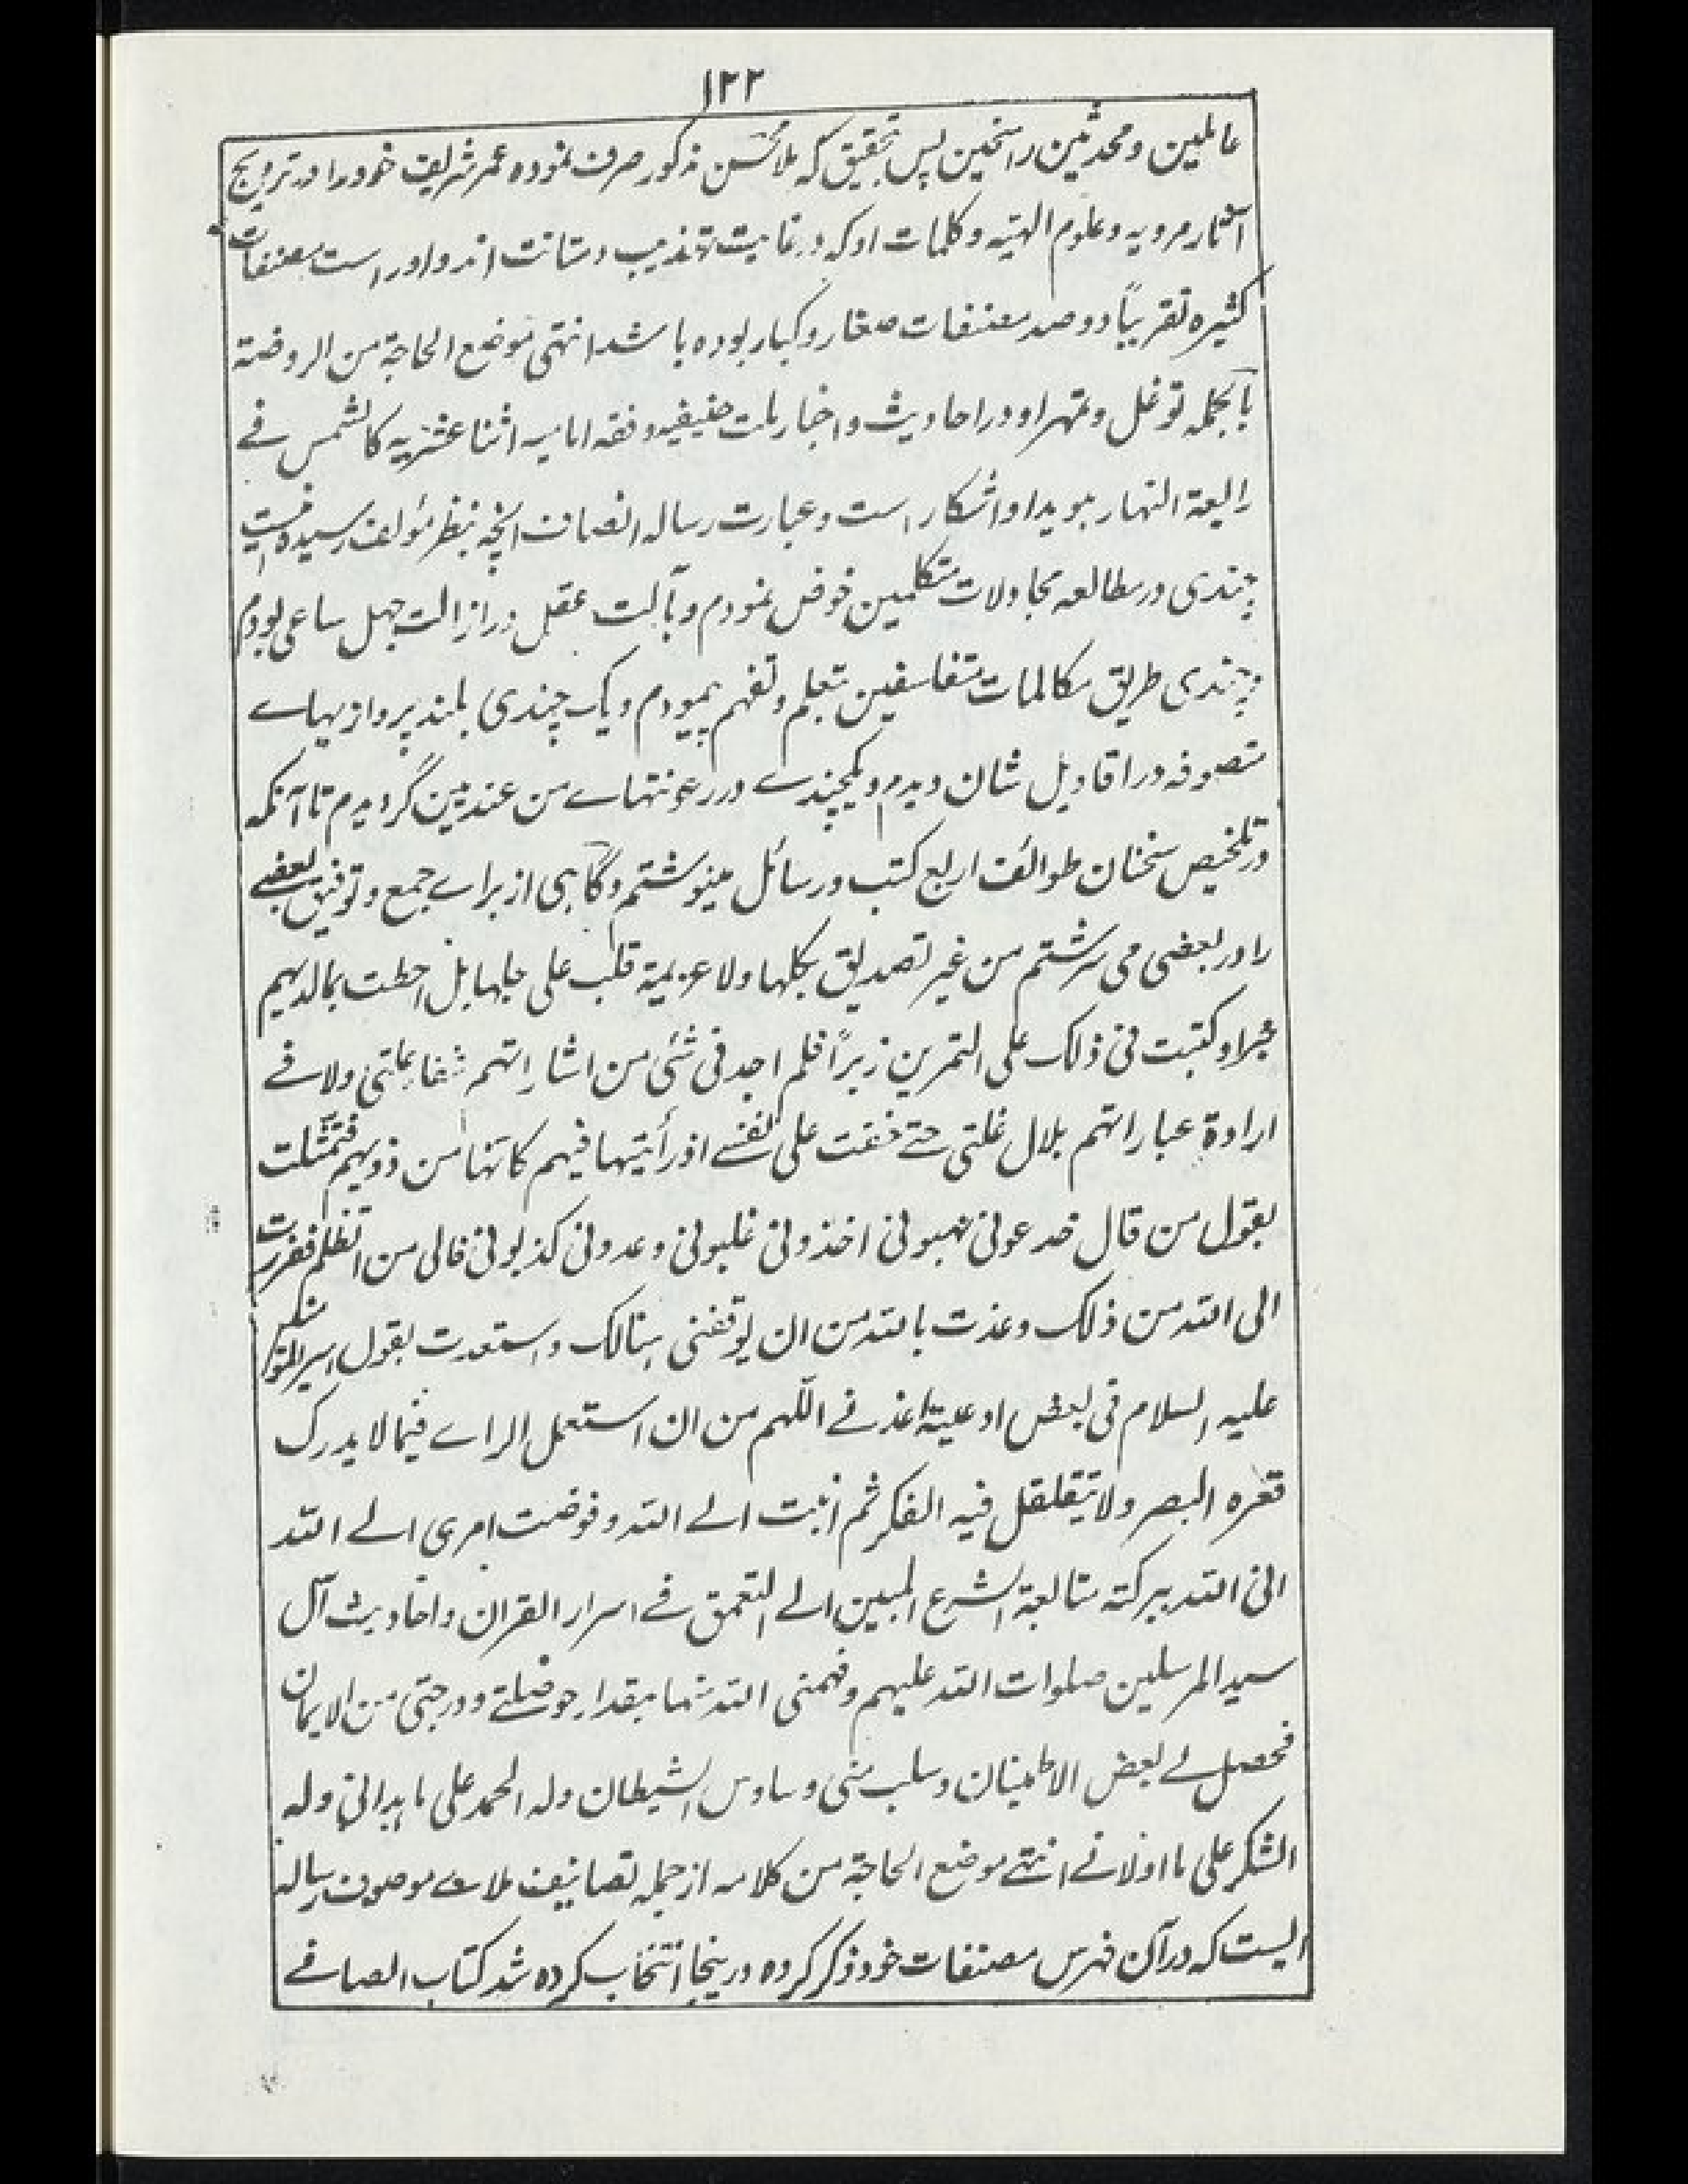 ١٢٢
عاملین و محدثین راسخین پس تحقیق که ملا محسن مذکور صرف نموده عمر شریف خود را در ترویج
آثار مرویه و علوم الهیّه و کلمات او که در غایت تهذیب و متانت اند و او راست مصنفات
کثیره تقریباً دو صد مصنفات صغار و کبار بوده باشد انتهی موضع الحاجة من الروضة
بالجمله توغل و تمهر او در احادیث و اخبار ملت حنیفیه و فقه امامیه اثنا عشریه کالشمس فے
رابعة النهار هویدا و آشکار است و عبارت رساله انصاف انچه بنظر مؤلف رسیده اینست
چندی در مطالعه مجادلات متکلمین خوض نمودم و بآلت عقل در ازالت جهل ساعی بودم
و چندی طریق مکالمات متفلسفین بتعلم و تفهم پیمودم و یک چندی بلند پروازیهاے
متصوفه در اقاویل شان دیدم و یکچندے در رعونتهاے من عندیین گردیدم تا آنکه
در تلخیص سخنان طوائف اربع کتب و رسائل مینوشتم و گاهی از براے جمع و توفیق بعضے
را در بعضی می سرشتم من غیر تصدیق بکلها ولا عزیمة قلب علی جلها بل احطت بما لدیهم
خبرا و کتبت فی ذلک علی التمرین زبراً فلم اجد فی شئی من اشاراتهم شفاء علتی ولا فے
ارادة عباراتهم بلال غلتی حتے خفت علی نفسے اذ رأیتها فیهم کانها من ذویهم فتمثلت
بقول من قال خدعونی نهبونی اخذونی غلبونی وعدونی کذبونی فالی من اتظلم ففررت
الی الله من ذلک وعذت بالله من ان یوقفنی هنالک واستعدت بقول امیر المؤمنین
علیه السلام فی بعض ادعیته اعذنے اللّهم من ان استعمل الراے فیما لا یدرک
قعره البصر ولا یتقلقل فیه الفکر ثم انبت الے الله وفوضت امری الے الله
انی الله ببرکة متابعة الشرع المبین الے التعمق فے اسرار القران واحادیث آل
سید المرسلین صلوات الله علیهم وفهمنی الله منها بمقدار حوصلتے ودرجتی من الایمان
فحصل لے بعض الاطمینان وسلب منی وساوس الشیطان وله الحمد علی ما هدانی وله
الشکر علی ما اولانے انتهے موضع الحاجة من کلامه از جمله تصانیف ملاے موصوف رساله
الیست که در آن فهرس مصنفات خود ذکر کرده درینجا انتخاب کرده شد کتاب الصافے